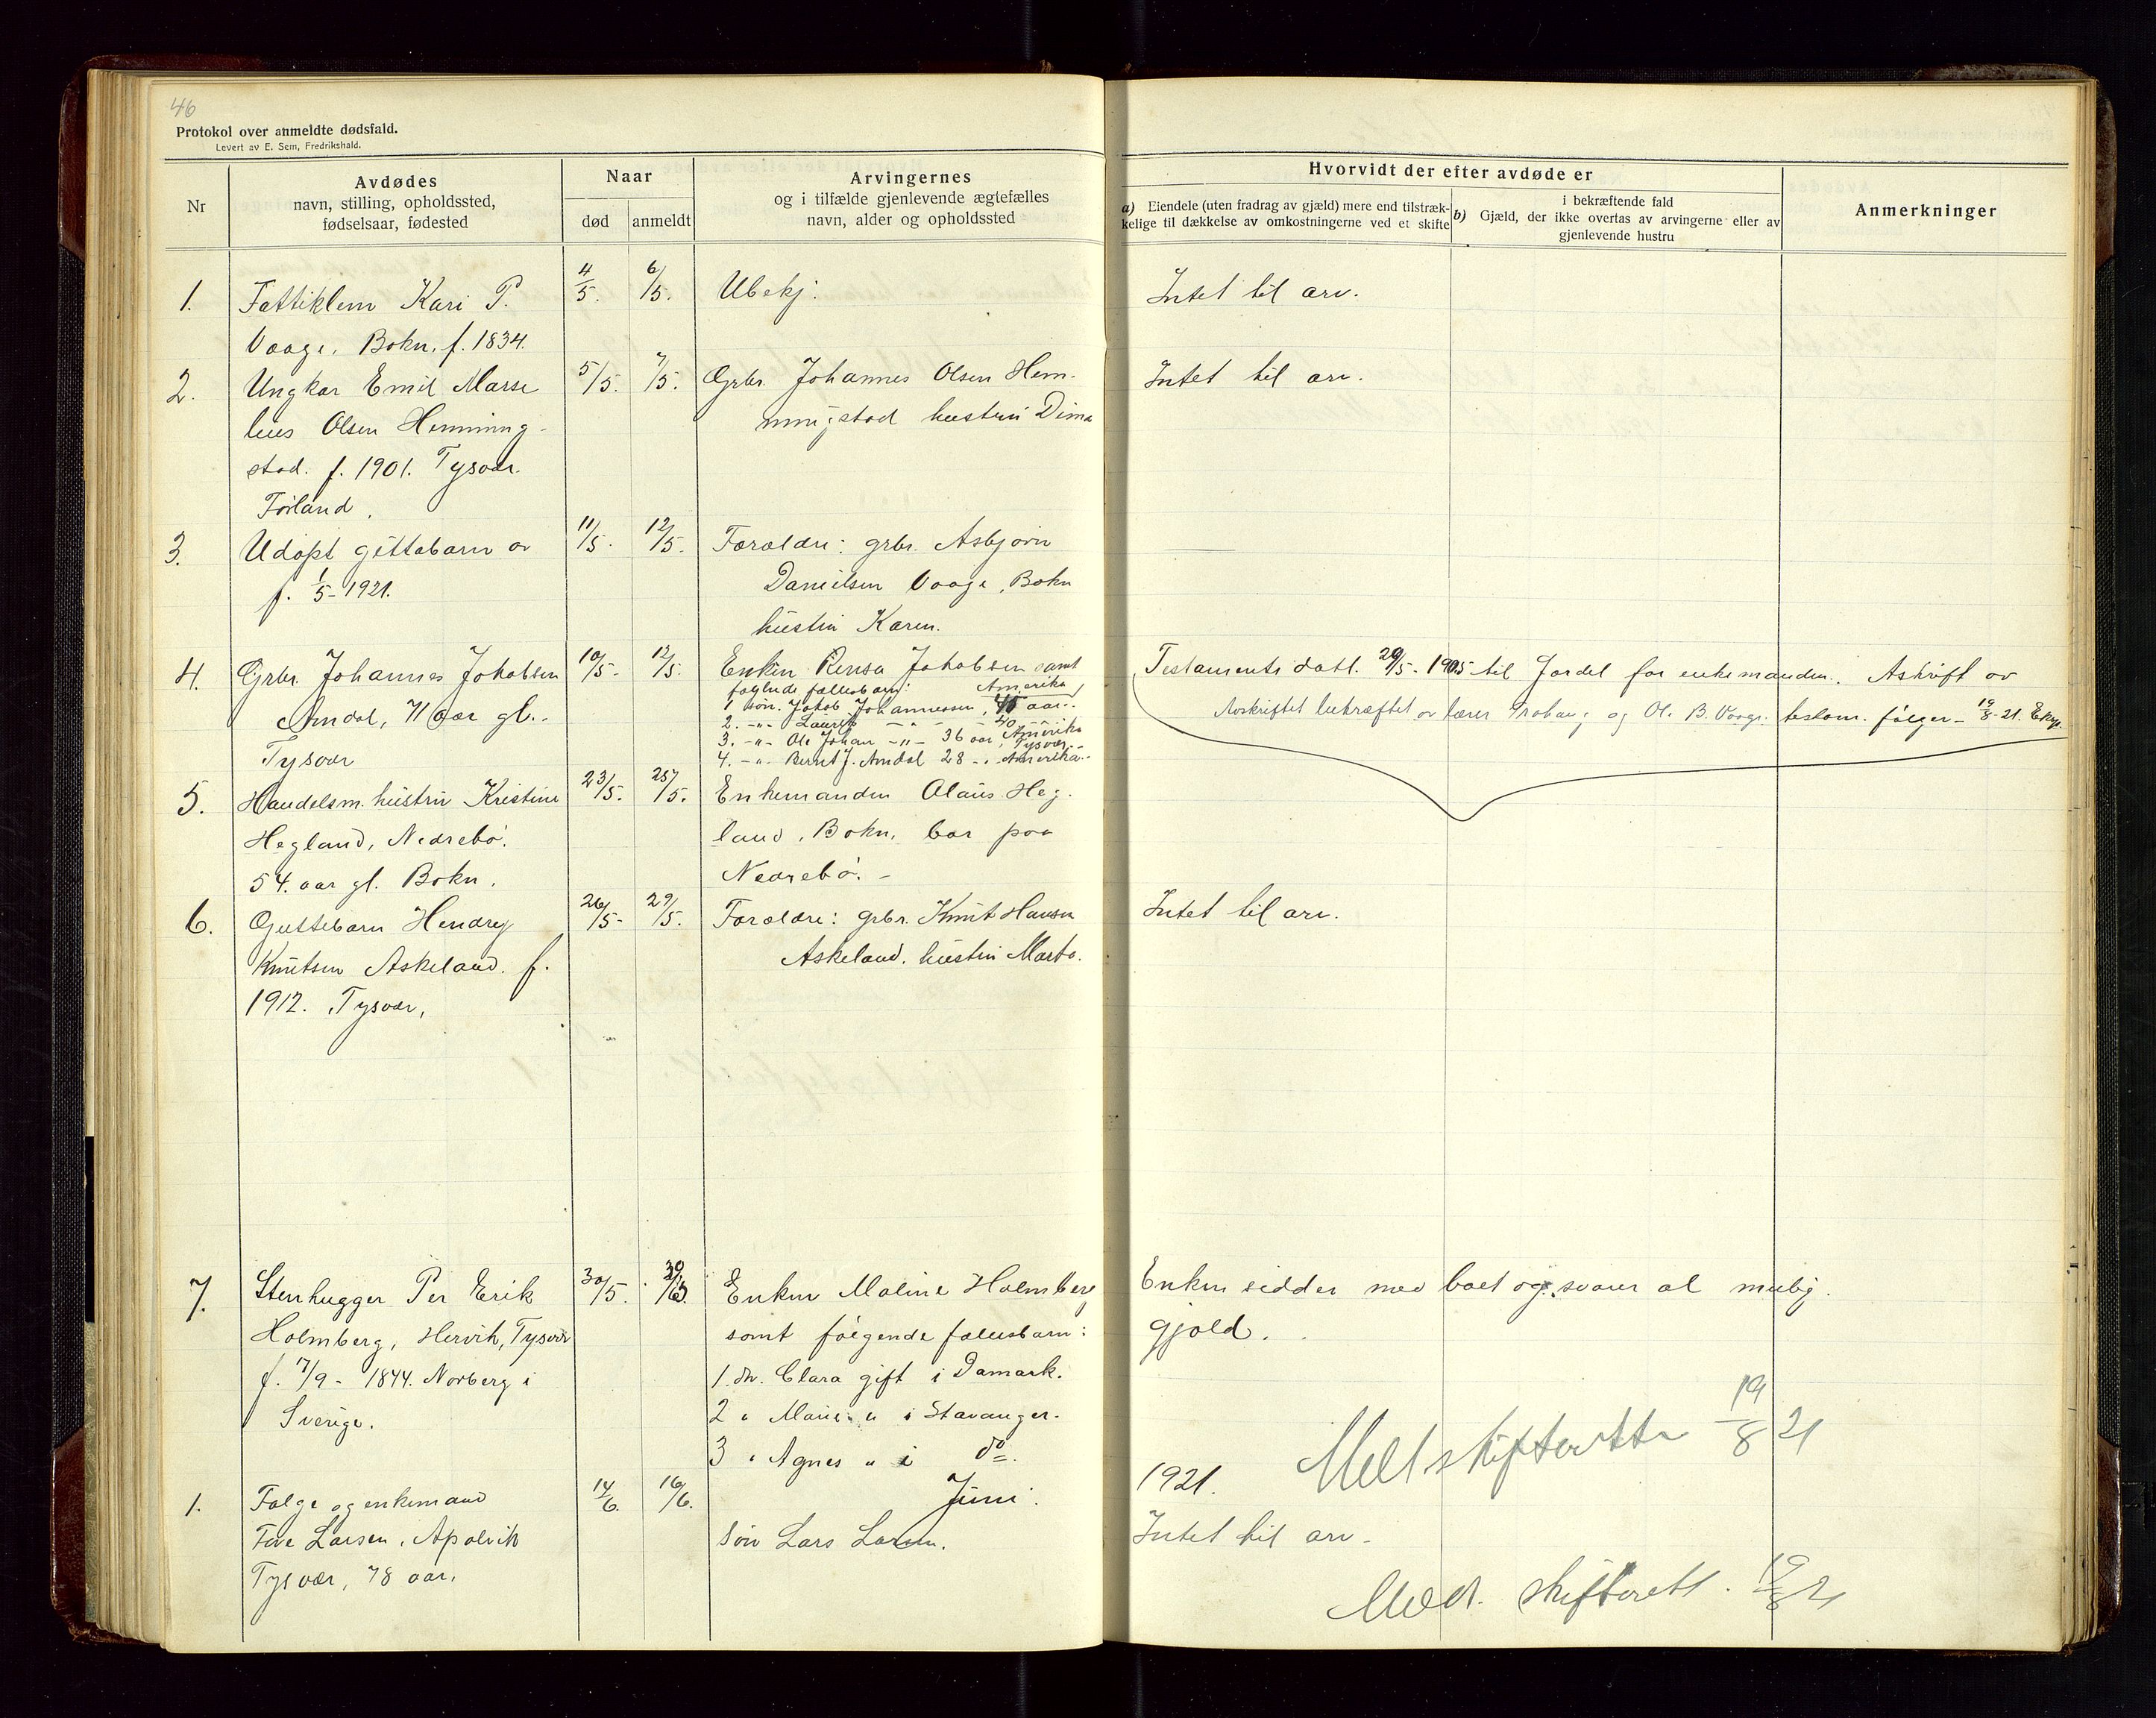 46
Protokol over anmeldte dødsfald.
Levert av E. Sem, Fredrikshald.
Nr
Avdødes
navn, stilling, opholdssted,
fødselsaar, fødested
Naar
død
anmeldt
Arvingernes
og i tilfælde gjenlevende ægtefælles
navn, alder og opholdssted
Hvorvidt der efter avdøde er
a) Eiendele (uten fradrag av gjæld) mere end tilstræk-
kelige til dækkelse av omkostningerne ved et skifte
i bekræftende fald
b) Gjæld, der ikke overtas av arvingerne eller av
gjenlevende hustru
Anmerkninger
1. Fattiklem Kari P. 4/5. 6/5. Ubekj. Intet til arv.
Vaage, Bokn. f. 1834.
2. Ungkar Emil Marse 5/5. 7/5. Grbr. Johannes Olsen Hem- Intet til arv.
lius Olsen Henning- mingstad hustru Dima
stad. f. 1901. Tysvær.
Førland.
3. Udøpt guttebarn av 11/5. 12/5. Forældre: grbr. Asbjørn
f. 1/5-1921. Danielsen Vaage, Bokn
hustru Karen.
4. Grbr. Johannes Jakobsen 10/5- 12/5. Enken Jakobsen samt
følgende fællesbarn: Amerika
1 søn. Jakob Johannessen, aar.
2. -"- Laurits - " - 40 "
3. -"- Ole Johan -"- 36 aar, Tysvær
4. -"- Bernt J. Amdal 28 -"- Amerika.
Amdal, 71 aar gl..
Tysvær
Testamente datt. 29/5-1905 til fordel for enkemanden. Askrift av
Avskriftet bekræftet av og Ol. B. Vaage. følger - 19/8-21.
5. Handelsm. hustru Kristine 23/5. 25/5. Enkemanden Olaus Heg-
Hegland, Nedrebø. land, Bokn, bor paa
54. aar gl. Bokn. Nedrebø. -
6. Guttebarn Hendry 26/5- 29/5. Forældre: grbr. Knut Hansen Intet til arv.
Knutsen Askeland. f. Askeland. hustru Marta.
1912. Tysvær,
7. Stenhugger Per Erik 30/5. Enken Maline Holmberg Enken sidder med boet og svarer al mulig.
Holmberg, Hervik, Tysvær samt følgende fællesbarn: gjæld.
f. 7/9- 1844. Norberg i 1. dr. Clara gift i Damark.
Sverige. 2 " Marie " i Stavanger.
3 " Agnes " i do.
Meldt skifteretten 19/8 21
Juni 1921.
1. Følge og enkemand 14/6. 16/6. søn Lars Larsen. Intet til arv.
Tove Larsen, Apalvik
Tysvær, 78 aar.
Meldt. skifterett. 19/8 21